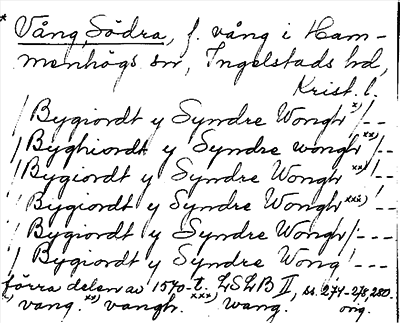 * Vång, Södra, f. vång i Ham-
menhögs sn, Ingelstads hd,
Krist. l.
/ Bygiordt y Syndre Wongh x) /--
/ Byghiordt y Syndre wongh xx) /--
/ Bygiordt y Syndre Wongh xx) /--
/ Bygiordt y Syndre Wongh xxx) /---
/ Bygiordt y Syndre Wongh /---
/ Bygiordt y Syndre Wong /---
förra delen av 1570-t. LSLB II, ss. 274-278, 280.
x) vang. xx) vangh. xxx) wang. orig.